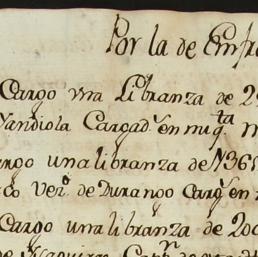 Por la de Emfra
Cargo vna Libranza de 2
Vandiola Cargad.ˢ en mi q.ᵗᵃ
argo una libranza de N365
co Ver.ᵒ de Durango Carg.ˢ en
Cargo una libranza de 20